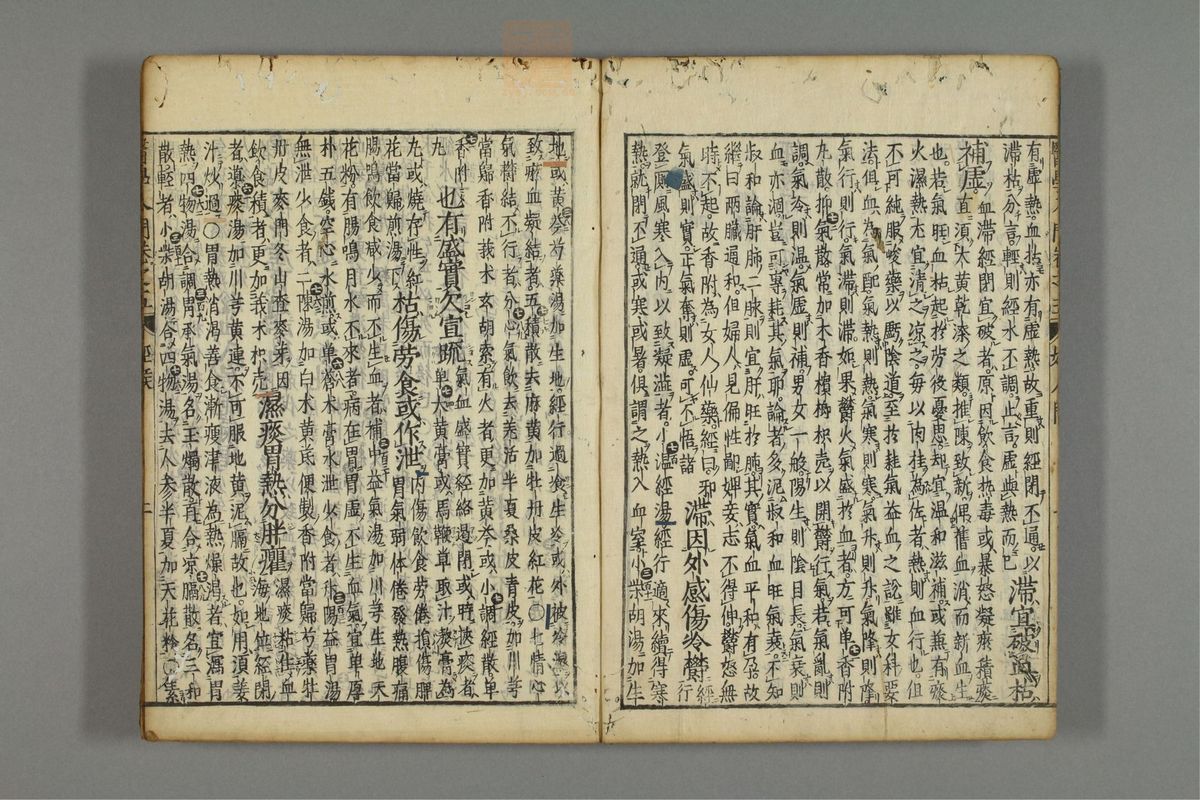 有虛熱血枯亦有虛熱故重則經閉不通以
滯枯分言輕則經水不調止言虛與熱而已 滯宜破血枯
補虛 血滯經閉宜破者原因飲食熱毒或暴怒凝瘀積痰
直須大黃乾漆之類推陳致新俾舊血消而新血生
也若氣旺血枯起於勞役憂思却宜溫和滋補或兼有痰
火濕熱尤宜清之凉之每以肉桂為佐者熱則血行也但
不可純服峻藥以虧陰道至於耗氣益血之說雖女科要
法但血為氣配氣熱則熱氣寒則寒氣升則升氣降則降
氣行則行氣滯則滯如果鬱火氣盛於血者方可單香附
九散抑氣散常加木香檳榔枳壳以開鬱行氣若氣亂則
調氣冷則溫氣虛則補男女一般陽生則陰自長氣衰則
血亦涸豈可專耗其氣耶論者多泥叔和血旺氣衰不知
叔和論肝肺一脉則宜肝旺於肺其實氣血平和有孕故
繼曰兩臟通和但婦人見偏性鄙婢妾志不得伸鬱怒無
時不起故香附為女人仙藥經曰和
氣盛則實正氣奪則虛可不悟諸 滯因外感傷冷欝 經行
登厠風寒入內以致凝滯者小溫經湯經行適來續得寒
熱就閉不通或寒或暑俱謂之熱入血室小柴胡湯加生
地或黃芩芍藥湯加生地經行過食生冷或外被冷濕以
致瘀血凝結者五積散去麻黃加牡丹皮紅花〇七情心
氣欝結不行者分心氣飲去羌活半夏桑皮青皮加川芎
當歸香附莪术玄胡索有火者更加黃芩或小調經散單
香附
九 也有盛實欠宣䟽 氣血盛實經絡遏閉或時挾痰者
單大黃膏或馬鞭草取汁熬膏為
九或燒存性紅
花當歸煎湯下 枯傷勞食或作泄 內傷飲食勞倦損傷脾
胃氣弱體倦發熱腹痛
腸鳴飲食減少而不生血者補中益氣湯加川芎生地天
花粉有腸鳴月水不來者病在胃胃虛不生血氣宜單厚
朴五錢空心水煎或單蒼术膏水泄少食者升陽益胃湯
無泄少食者二陳湯加白术黃芪便製香附當歸芍藥牡
丹皮麥門冬山査麥芽因
飲食積者更加莪术枳壳 濕痰胃熱分胖癯 濕痰粘住血
海地位經閉
者導痰湯加川芎黃連不可服地黃泥膈故也如用須姜
汁炒過〇胃熱消渴善食漸瘦津液為熱燥渴者宜瀉胃
熱四物湯合調胃承氣湯名玉燭散頁合凉膈散名三和
散輕者小柴胡湯合四物湯去人參半夏加天花粉〇